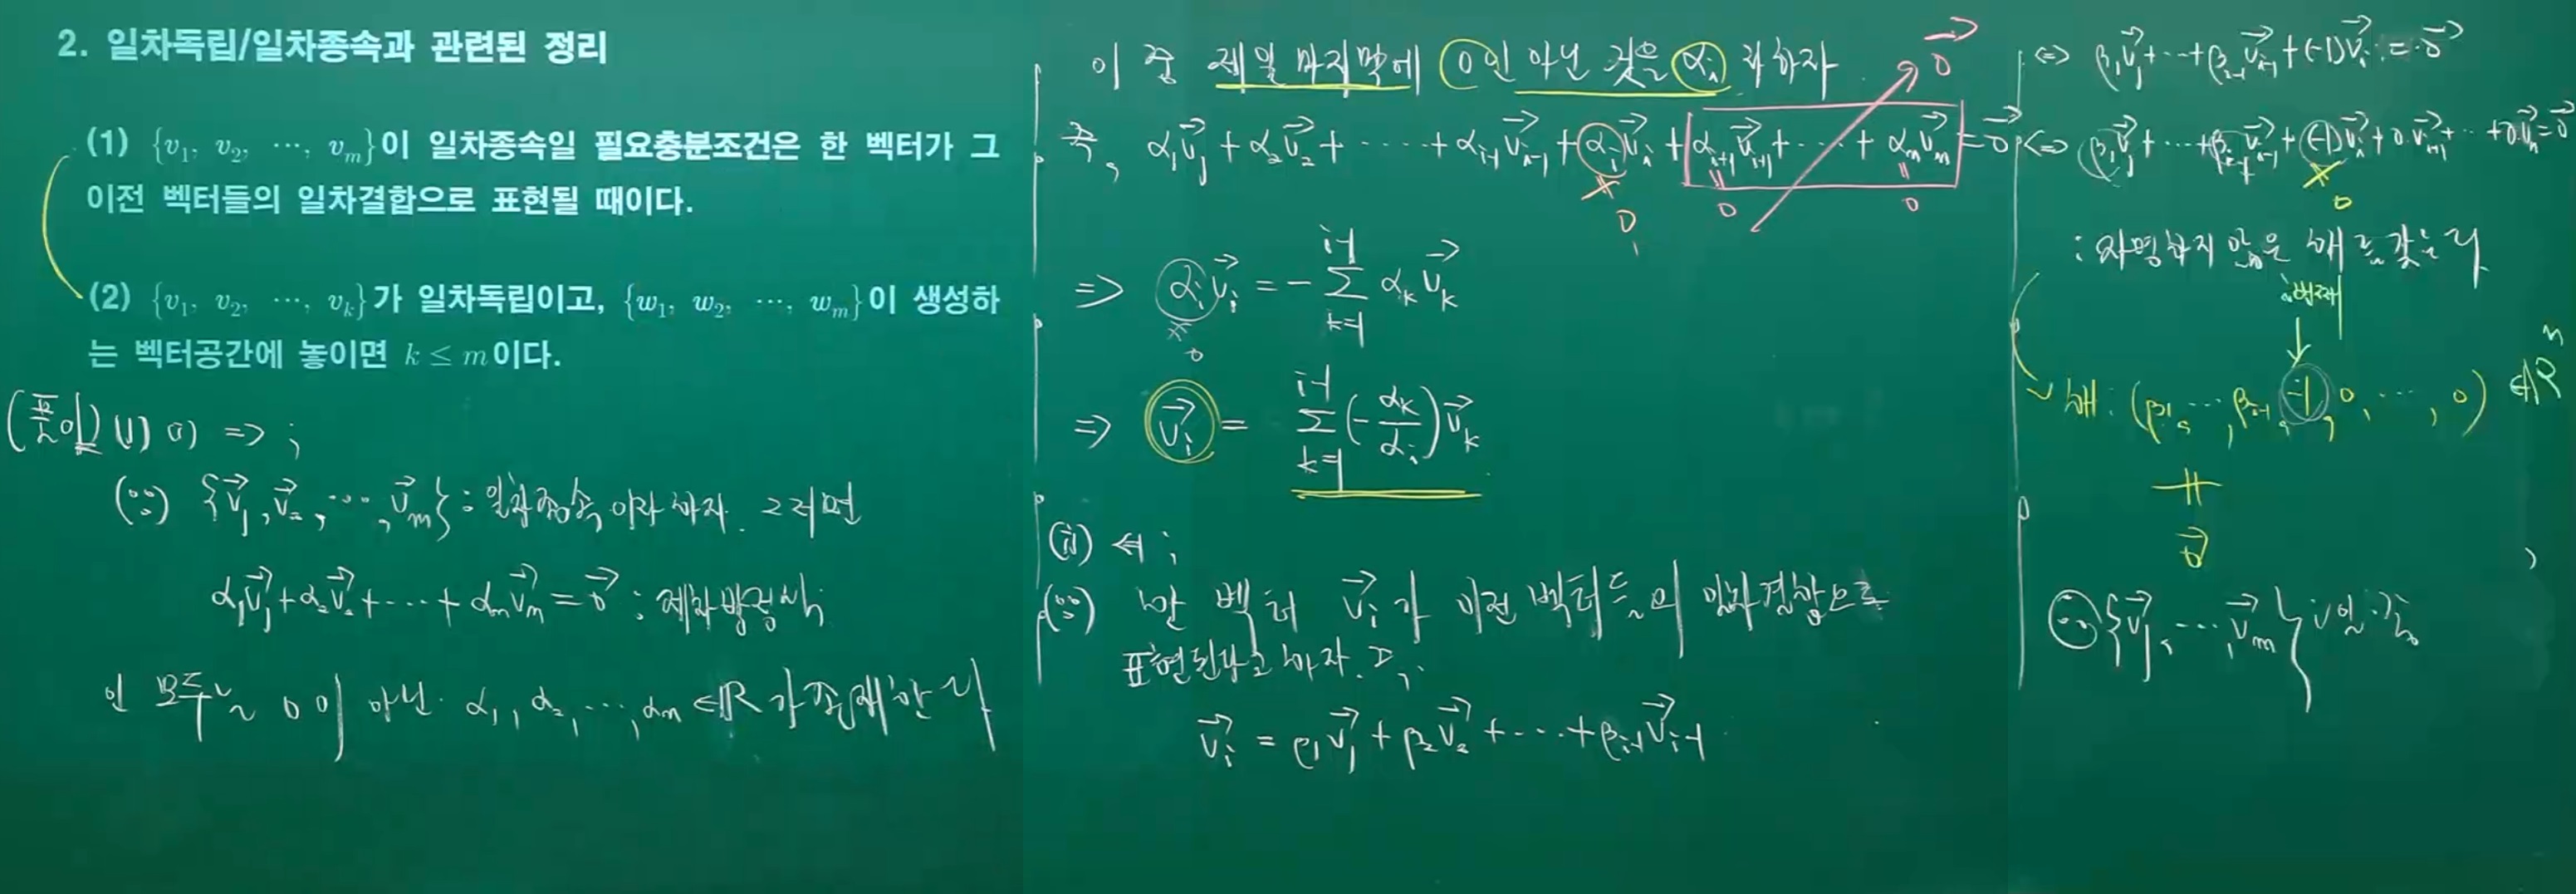 2. 일차독립/일차종속과 관련된 정리
(1) {v₁, v₂, ⋯, vₘ}이 일차종속일 필요충분조건은 한 벡터가 그
이전 벡터들의 일차결합으로 표현될 때이다.
(2) {v₁, v₂, ⋯, vₖ}가 일차독립이고, {w₁, w₂, ⋯, wₘ}이 생성하
는 벡터공간에 놓이면 k ≤ m이다.
(풀이) (1) (i) => ;
(∵) {v⃗₁, v⃗₂, ⋯, v⃗ₘ} : 일차종속이라 하자. 그러면
α₁v⃗₁ + α₂v⃗₂ + ⋯ + αₘv⃗ₘ = 0⃗ : 제차방정식
인 모두는 0이 아닌 α₁, α₂, ⋯, αₘ ∈ ℝ가 존재한다
이 중 제일 마지막에 0인 아닌 것을 αᵢ라 하자 0⃗
즉, α₁v⃗₁ + α₂v⃗₂ + ⋯⋯ + αᵢ₋₁v⃗ᵢ₋₁ + αᵢv⃗ᵢ + αᵢ₊₁v⃗ᵢ₊₁ + ⋯ + αₘv⃗ₘ = 0⃗
≠ 0 = 0 = 0
=> αᵢv⃗ᵢ = - Σ_{k=1}^{i-1} αₖv⃗ₖ
≠ 0
=> v⃗ᵢ = Σ_{k=1}^{i-1} (-αₖ/αᵢ) v⃗ₖ
(ii) <= ;
(∵) 한 벡터 v⃗ᵢ가 이전 벡터들의 일차결합으로
표현된다고 하자. 즉,
v⃗ᵢ = β₁v⃗₁ + β₂v⃗₂ + ⋯ + βᵢ₋₁v⃗ᵢ₋₁
<=> β₁v⃗₁ + ⋯ + βᵢ₋₁v⃗ᵢ₋₁ + (-1)v⃗ᵢ = 0⃗
<=> β₁v⃗₁ + ⋯ + βᵢ₋₁v⃗ᵢ₋₁ + (-1)v⃗ᵢ + 0·v⃗ᵢ₊₁ + ⋯ + 0·v⃗ₙ = 0⃗
≠ 0
: 자명하지 않은 해를 갖는다
i번째
해 : (β₁, ⋯, βᵢ₋₁, -1, 0, ⋯, 0) ∈ ℝⁿ
≠
0⃗
∴ {v⃗₁, ⋯, v⃗ₘ}